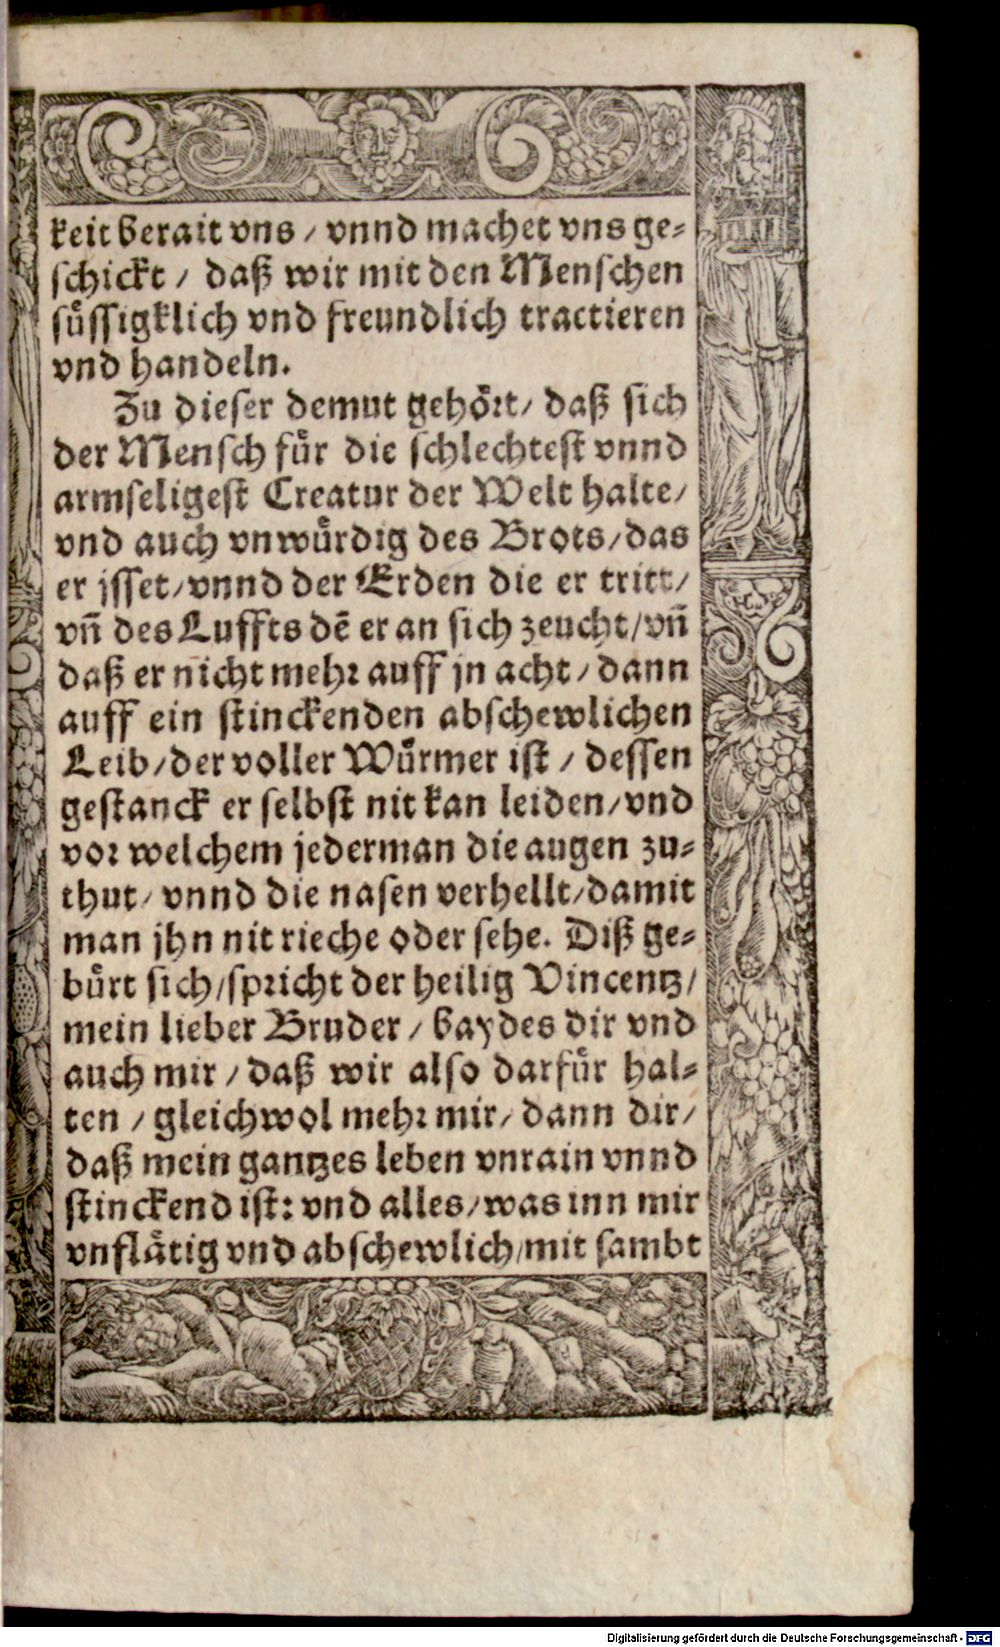 keit berait vns / vnnd machet vns ge⸗
schickt / daß wir mit den Menschen
suͤssigklich vnd freundlich tractieren
vnd handeln.
Zu dieser demut gehoͤꝛt / daß sich
der Mensch fuͤr die schlechtest vnnd
armseligest Creatur der Welt halte /
vnd auch vnwuͤrdig des Brots / das
er jsset / vnnd der Erden die er tritt /
vñ des Luffts dẽ er an sich zeucht / vñ
daß er nicht mehꝛ auff jn acht / dann
auff ein stinckenden abschewlichen
Leib / der voller Wuͤrmer ist / dessen
gestanck er selbst nit kan leiden / vnd
voꝛ welchem jederman die augen zu⸗
thut / vnnd die nasen verhellt / damit
man jhn nit rieche oder sehe. Diß ge⸗
buͤrt sich / spꝛicht der heilig Vincentz /
mein lieber Bruder / baydes dir vnd
auch mir / daß wir also darfuͤr hal⸗
ten / gleichwol mehꝛ mir / dann dir /
daß mein gantzes leben vnrain vnnd
stinckend ist: vnd alles / was inn mir
vnflaͤtig vnd abschewlich / mit sambt
Digitalisierung gefördert durch die Deutsche Forschungsgemeinschaft - DFG